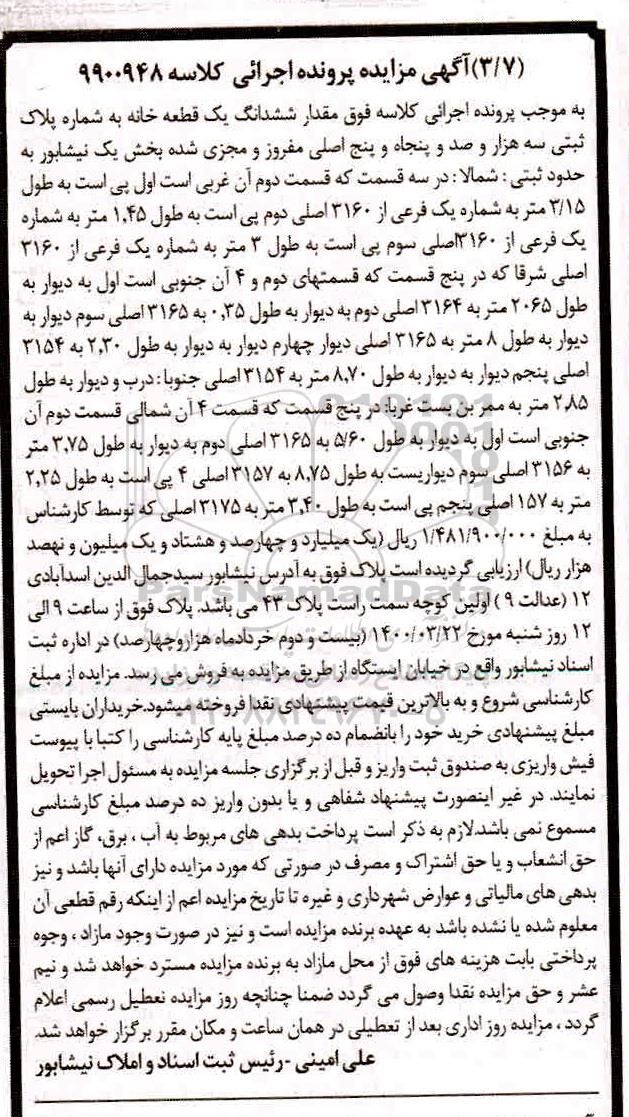 (۳/۷)آگهی مزایده پرونده اجرائی کلاسه ۹۹۰۰۹۴۸
به موجب پرونده اجرائی کلاسه فوق مقدار ششدانگ یک قطعه خانه به شماره پلاک
ثبتی سه هزار و صد و پنجاه و پنج اصلی مفروز و مجزی شده بخش یک نیشابور به
حدود ثبتی : شمالا : در سه قسمت که قسمت دوم آن غربی است اول پی است به طول
۳/۱۵ متر به شماره یک فرعی از ۳۱۶۰ اصلی دوم پی است به طول ۱,۴۵ متر به شماره
یک فرعی از ۳۱۶۰اصلی سوم پی است به طول ۳ متر به شماره یک فرعی از ۳۱۶۰
اصلی شرقا که در پنج قسمت که قسمتهای دوم و ۴ آن جنوبی است اول به دیوار به
طول ۲۰۶۵ متر به ۳۱۶۴ اصلی دوم به دیوار به طول ۰,۳۵ به ۳۱۶۵ اصلی سوم دیوار به
دیوار به طول ۸ متر به ۳۱۶۵ اصلی دیوار چهارم دیوار به دیوار به طول ۲,۳۰ به ۳۱۵۴
اصلی پنجم دیوار به دیوار به طول ۸,۷۰ متر به ۳۱۵۴ اصلی جنوبا : درب و دیوار به طول
۲,۸۵ متر به ممر بن بست غربا: در پنج قسمت که قسمت ۴ آن شمالی قسمت دوم آن
جنوبی است اول به دیوار به طول ۵/۶۰ به ۳۱۶۵ اصلی دوم به دیوار به طول ۳,۷۵ متر
به ۳۱۵۶ اصلی سوم دیواریست به طول ۸,۷۵ به ۳۱۵۷ اصلی ۴ پی است به طول ۲,۲۵
متر به ۱۵۷ اصلی پنجم پی است به طول ۳,۴۰ متر به ۳۱۷۵ اصلی که توسط کارشناس
به مبلغ ۱/۴۸۱/۹۰۰/۰۰۰ ریال (یک میلیارد و چهارصد و هشتاد و یک میلیون و نهصد
هزار ریال) ارزیابی گردیده است پلاک فوق به آدرس نیشابور سیدجمال الدین اسدآبادی
۱۲ (عدالت ۹ ) اولین کوچه سمت راست پلاک ۴۳ می باشد. پلاک فوق از ساعت ۹ الی
۱۲ روز شنبه مورخ ۱۴۰۰/۰۳/۲۲ (بیست و دوم خردادماه هزاروچهارصد) در اداره ثبت
اسناد نیشابور واقع در خیابان ایستگاه از طریق مزایده به فروش می رسد. مزایده از مبلغ
کارشناسی شروع و به بالاترین قیمت پیشنهادی نقدا فروخته میشود.خریداران بایستی
مبلغ پیشنهادی خرید خود را بانضمام ده درصد مبلغ پایه کارشناسی را کتبا با پیوست
فیش واریزی به صندوق ثبت واریز و قبل از برگزاری جلسه مزایده به مسئول اجرا تحویل
نمایند. در غیر اینصورت پیشنهاد شفاهی و یا بدون واریز ده درصد مبلغ کارشناسی
مسموع نمی باشد.لازم به ذکر است پرداخت بدهی های مربوط به آب ، برق، گاز اعم از
حق انشعاب و یا حق اشتراک و مصرف در صورتی که مورد مزایده دارای آنها باشد و نیز
بدهی های مالیاتی و عوارض شهرداری و غیره تا تاریخ مزایده اعم از اینکه رقم قطعی آن
معلوم شده یا نشده باشد به عهده برنده مزایده است و نیز در صورت وجود مازاد ، وجوه
پرداختی بابت هزینه های فوق از محل مازاد به برنده مزایده مسترد خواهد شد و نیم
عشر و حق مزایده نقدا وصول می گردد ضمنا چنانچه روز مزایده تعطیل رسمی اعلام
گردد ، مزایده روز اداری بعد از تعطیلی در همان ساعت و مکان مقرر برگزار خواهد شد.
علی امینی - رئیس ثبت اسناد و املاک نیشابور
ParsNamadData